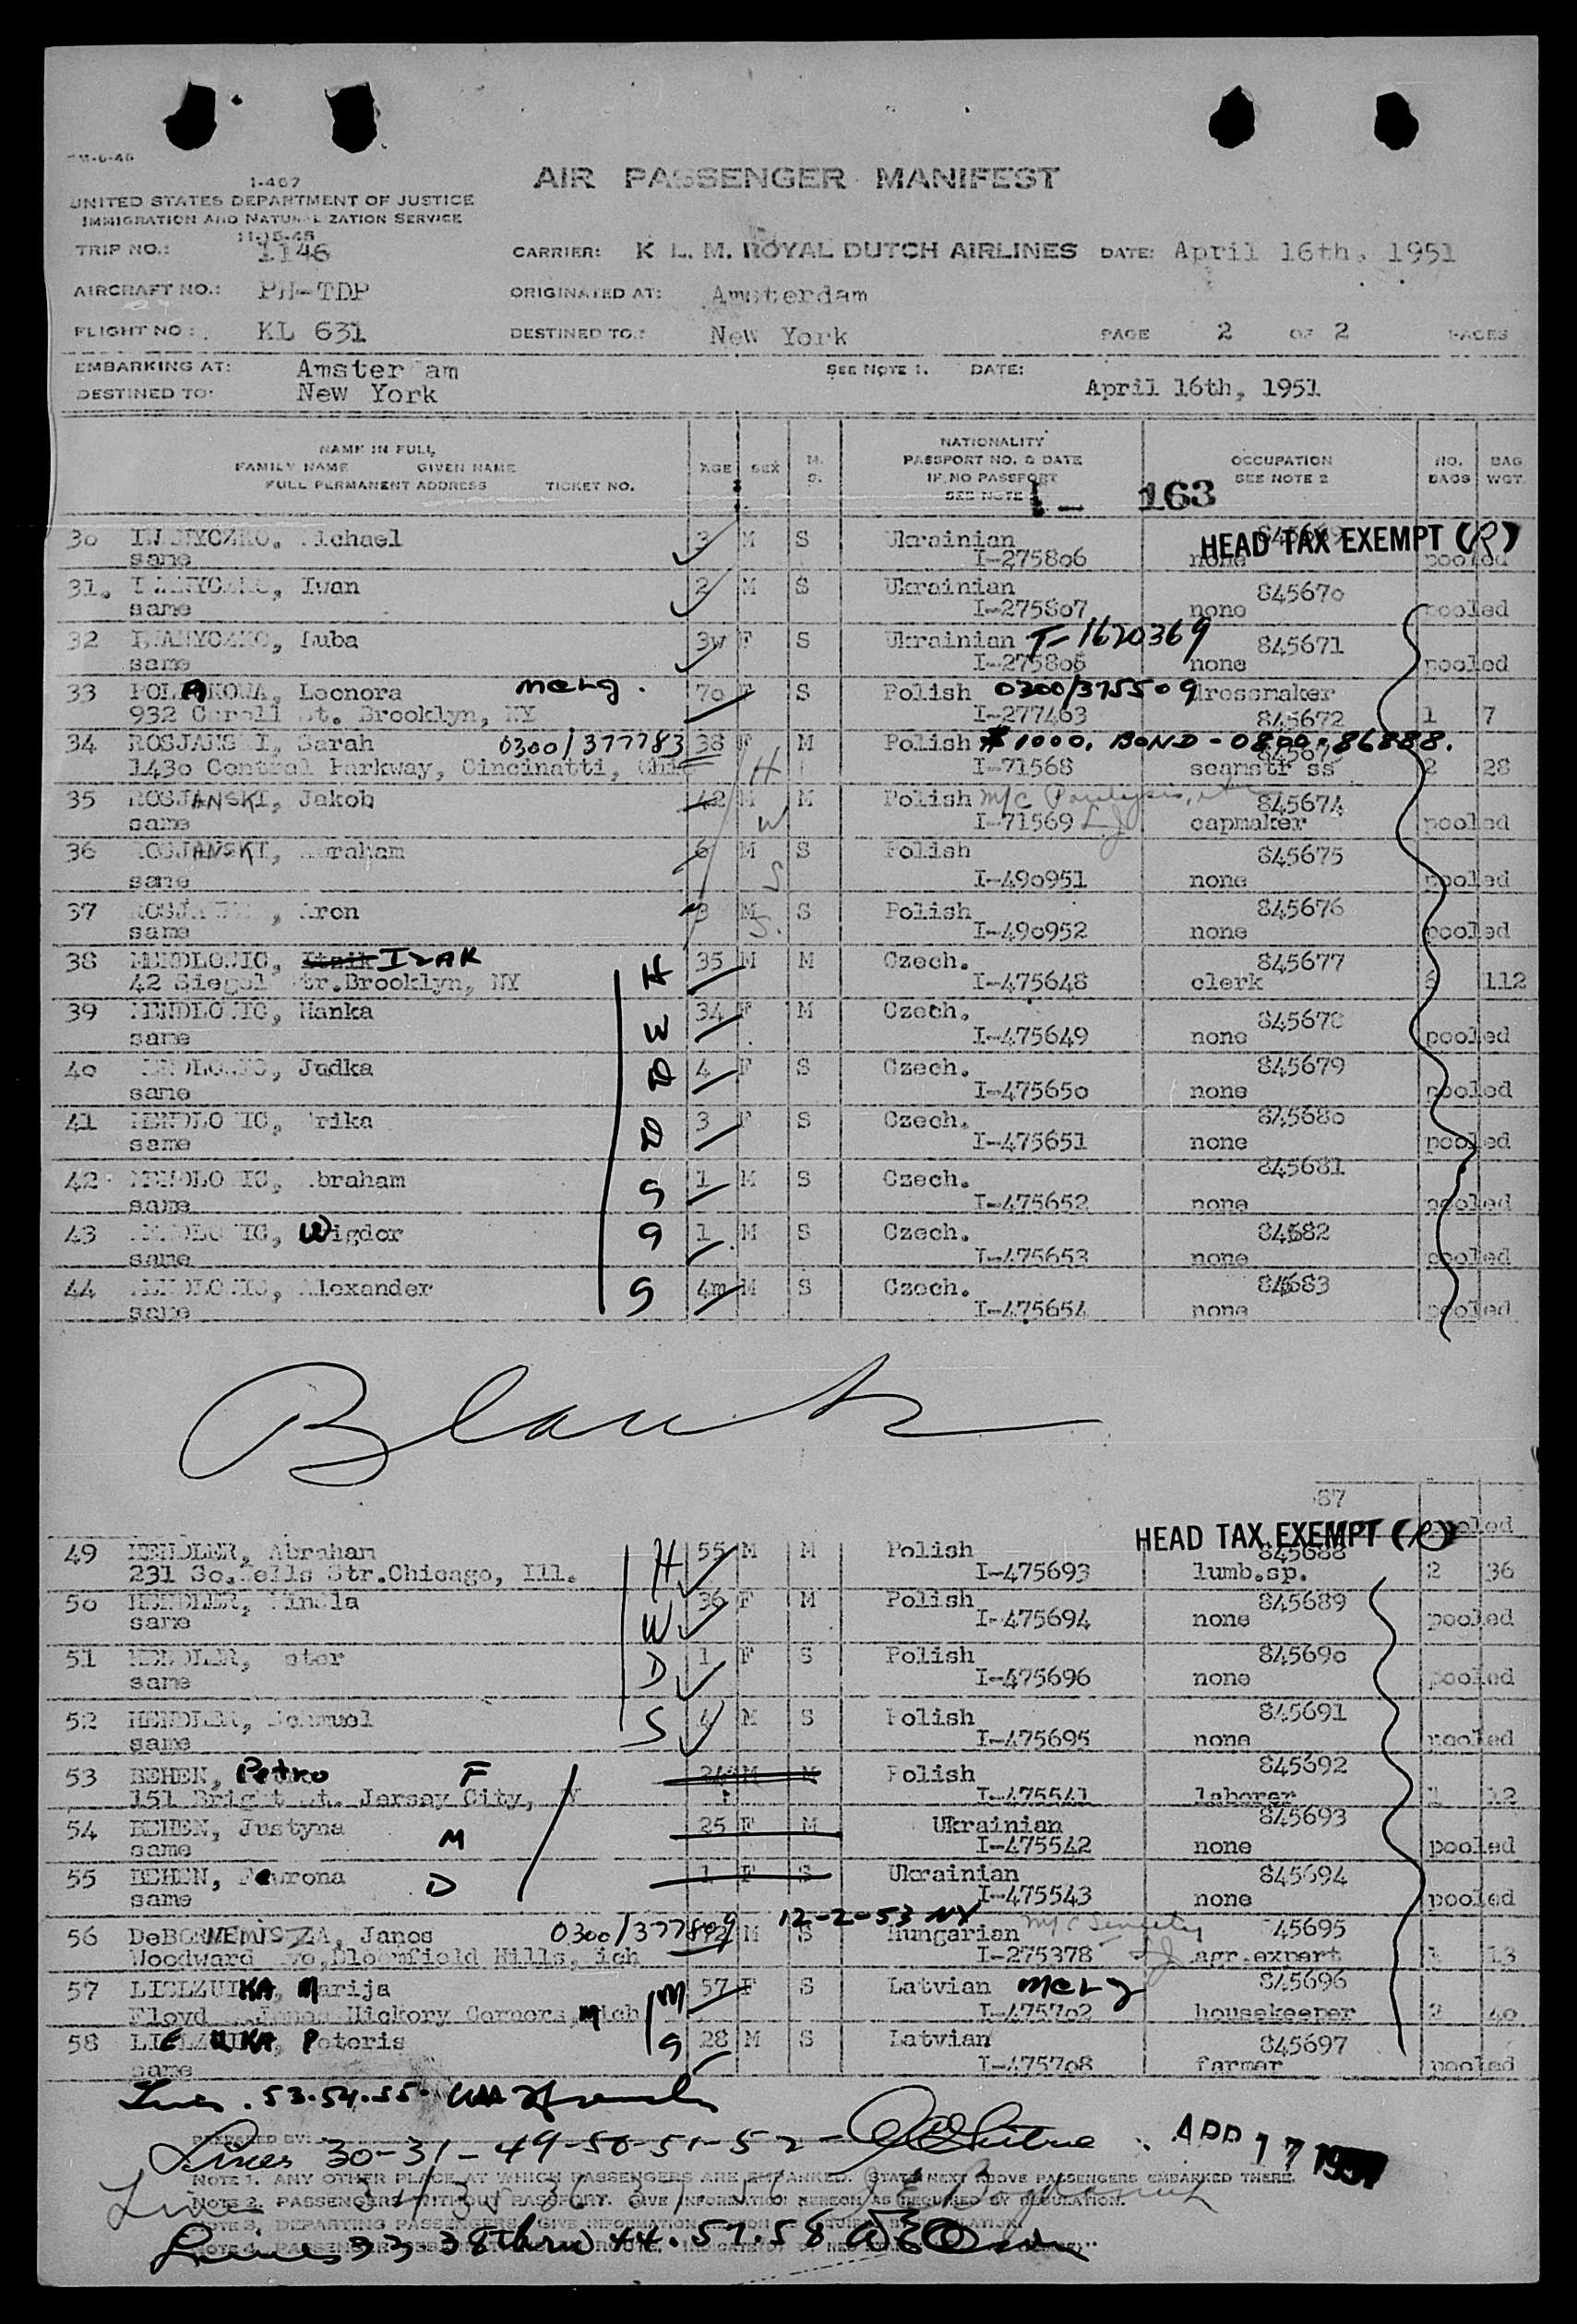 I-467
UNITED STATES DEPARTMENT OF JUSTICE
IMMIGRATION AND NATURALIZATION SERVICE
11-15-45
AIR PASSENGER MANIFEST
TRIP NO.: 1146 CARRIER: K L. M. ROYAL DUTCH AIRLINES DATE: April 16th, 1951
AIRCRAFT NO.: PH-TDP ORIGINATED AT: Amsterdam
FLIGHT NO: KL 631 DESTINED TO: New York PAGE 2 OF 2 PAGES
EMBARKING AT: Amster am SEE NOTE 1. DATE:
DESTINED TO: New York April 16th, 1951
NAME IN FULL
FAMILY NAME GIVEN NAME
FULL PERMANENT ADDRESS TICKET NO.
AGE SEX M. S.
NATIONALITY
PASSPORT NO. & DATE
IF NO PASSPORT
SEE NOTE
OCCUPATION
SEE NOTE 2
NO. BAGS BAG WGT.
I - 163
30 Michael 3 M S Ukrainian
same I-275806 none pooled
HEAD TAX EXEMPT (R)
31. Iwan 2 M S Ukrainian 845670
same I-275807 none pooled
32 Luba 3w F S Ukrainian T-1620369 845671
same none pooled
33 Leonora 70 F S Polish 0300/375509 dressmaker
932 St. Brooklyn, NY I-277463 845672 1 7
34 Sarah 0300/377783 38 F M Polish $1000. BOND - 0800-86888.
1430 Central Parkway, Cincinatti, I-71568 seamstr ss 2 28
35 ROSJANSKI, Jakob 42 M M Polish 845674
same I-71569 capmaker pooled
36 ROSJANSKI, Abraham 6 M S Polish 845675
same I-490951 none pooled
37 Aron 3 M S Polish 845676
same I-490952 none pooled
38 IZAK H 35 M M Czech. 845677
42 Siegel Str.Brooklyn, NY I-475648 clerk 112
39 Hanka W 34 F M Czech. 845678
same I-475649 none pooled
40 Judka D 4 F S Czech. 845679
same I-475650 none pooled
41 rika D 3 F S Czech. 845680
same I-475651 none pooled
42 braham S 1 M S Czech. 845681
same I-475652 none pooled
43 Wigdor S 1 M S Czech. 84682
same I-475653 none pooled
44 Alexander S 4m M S Czech. 84683
same I-475654 none pooled
Blank
87
pooled
HEAD TAX EXEMPT (R)
49 HENDLER, Abraham H 55 M M Polish 845688
231 So.Wells Str.Chicago, Ill. I-475693 lumb.sp. 2 36
50 HENDLER, W 36 F M Polish 845689
same I-475694 none pooled
51 HENDLER, D 1 F S Polish 845690
same I-475696 none pooled
52 HENDLER, Schmuel S 4 M S Polish 845691
same I-475695 none pooled
53 BEHEN, Petro F Polish 845692
151 Bright St. Jersey City, I-475541 laborer 12
54 BEHEN, Justyna M 25 F M Ukrainian 845693
same I-475542 none pooled
55 BEHEN, Feurona D 1 F S Ukrainian 845694
same I-475543 none pooled
56 Janos 0300/377809 12-2-53 NY M S Hungarian 45695
Woodward Bloomfield Hills, ich I-275378 agr.expert 13
57 Marija M 57 F S Latvian 845696
Floyd Hickory Corners, Mich I-475702 housekeeper 2 40
58 Peteris S 28 M S Latvian 845697
same I-475708 farmer pooled
53.54.55.
PREPARED BY:
Lines 30-31-49-50-51-52- APR 17 1951
NOTE 1. ANY OTHER PLACE AT WHICH PASSENGERS ARE EMBARKED. STATE NEXT ABOVE PASSENGERS EMBARKED THERE.
Lines 34 35 36 37 56
NOTE 2. PASSENGERS WITHOUT PASSPORT. GIVE INFORMATION HEREON AS REQUIRED BY REGULATION.
Lines 33 38 thru 44.57.58